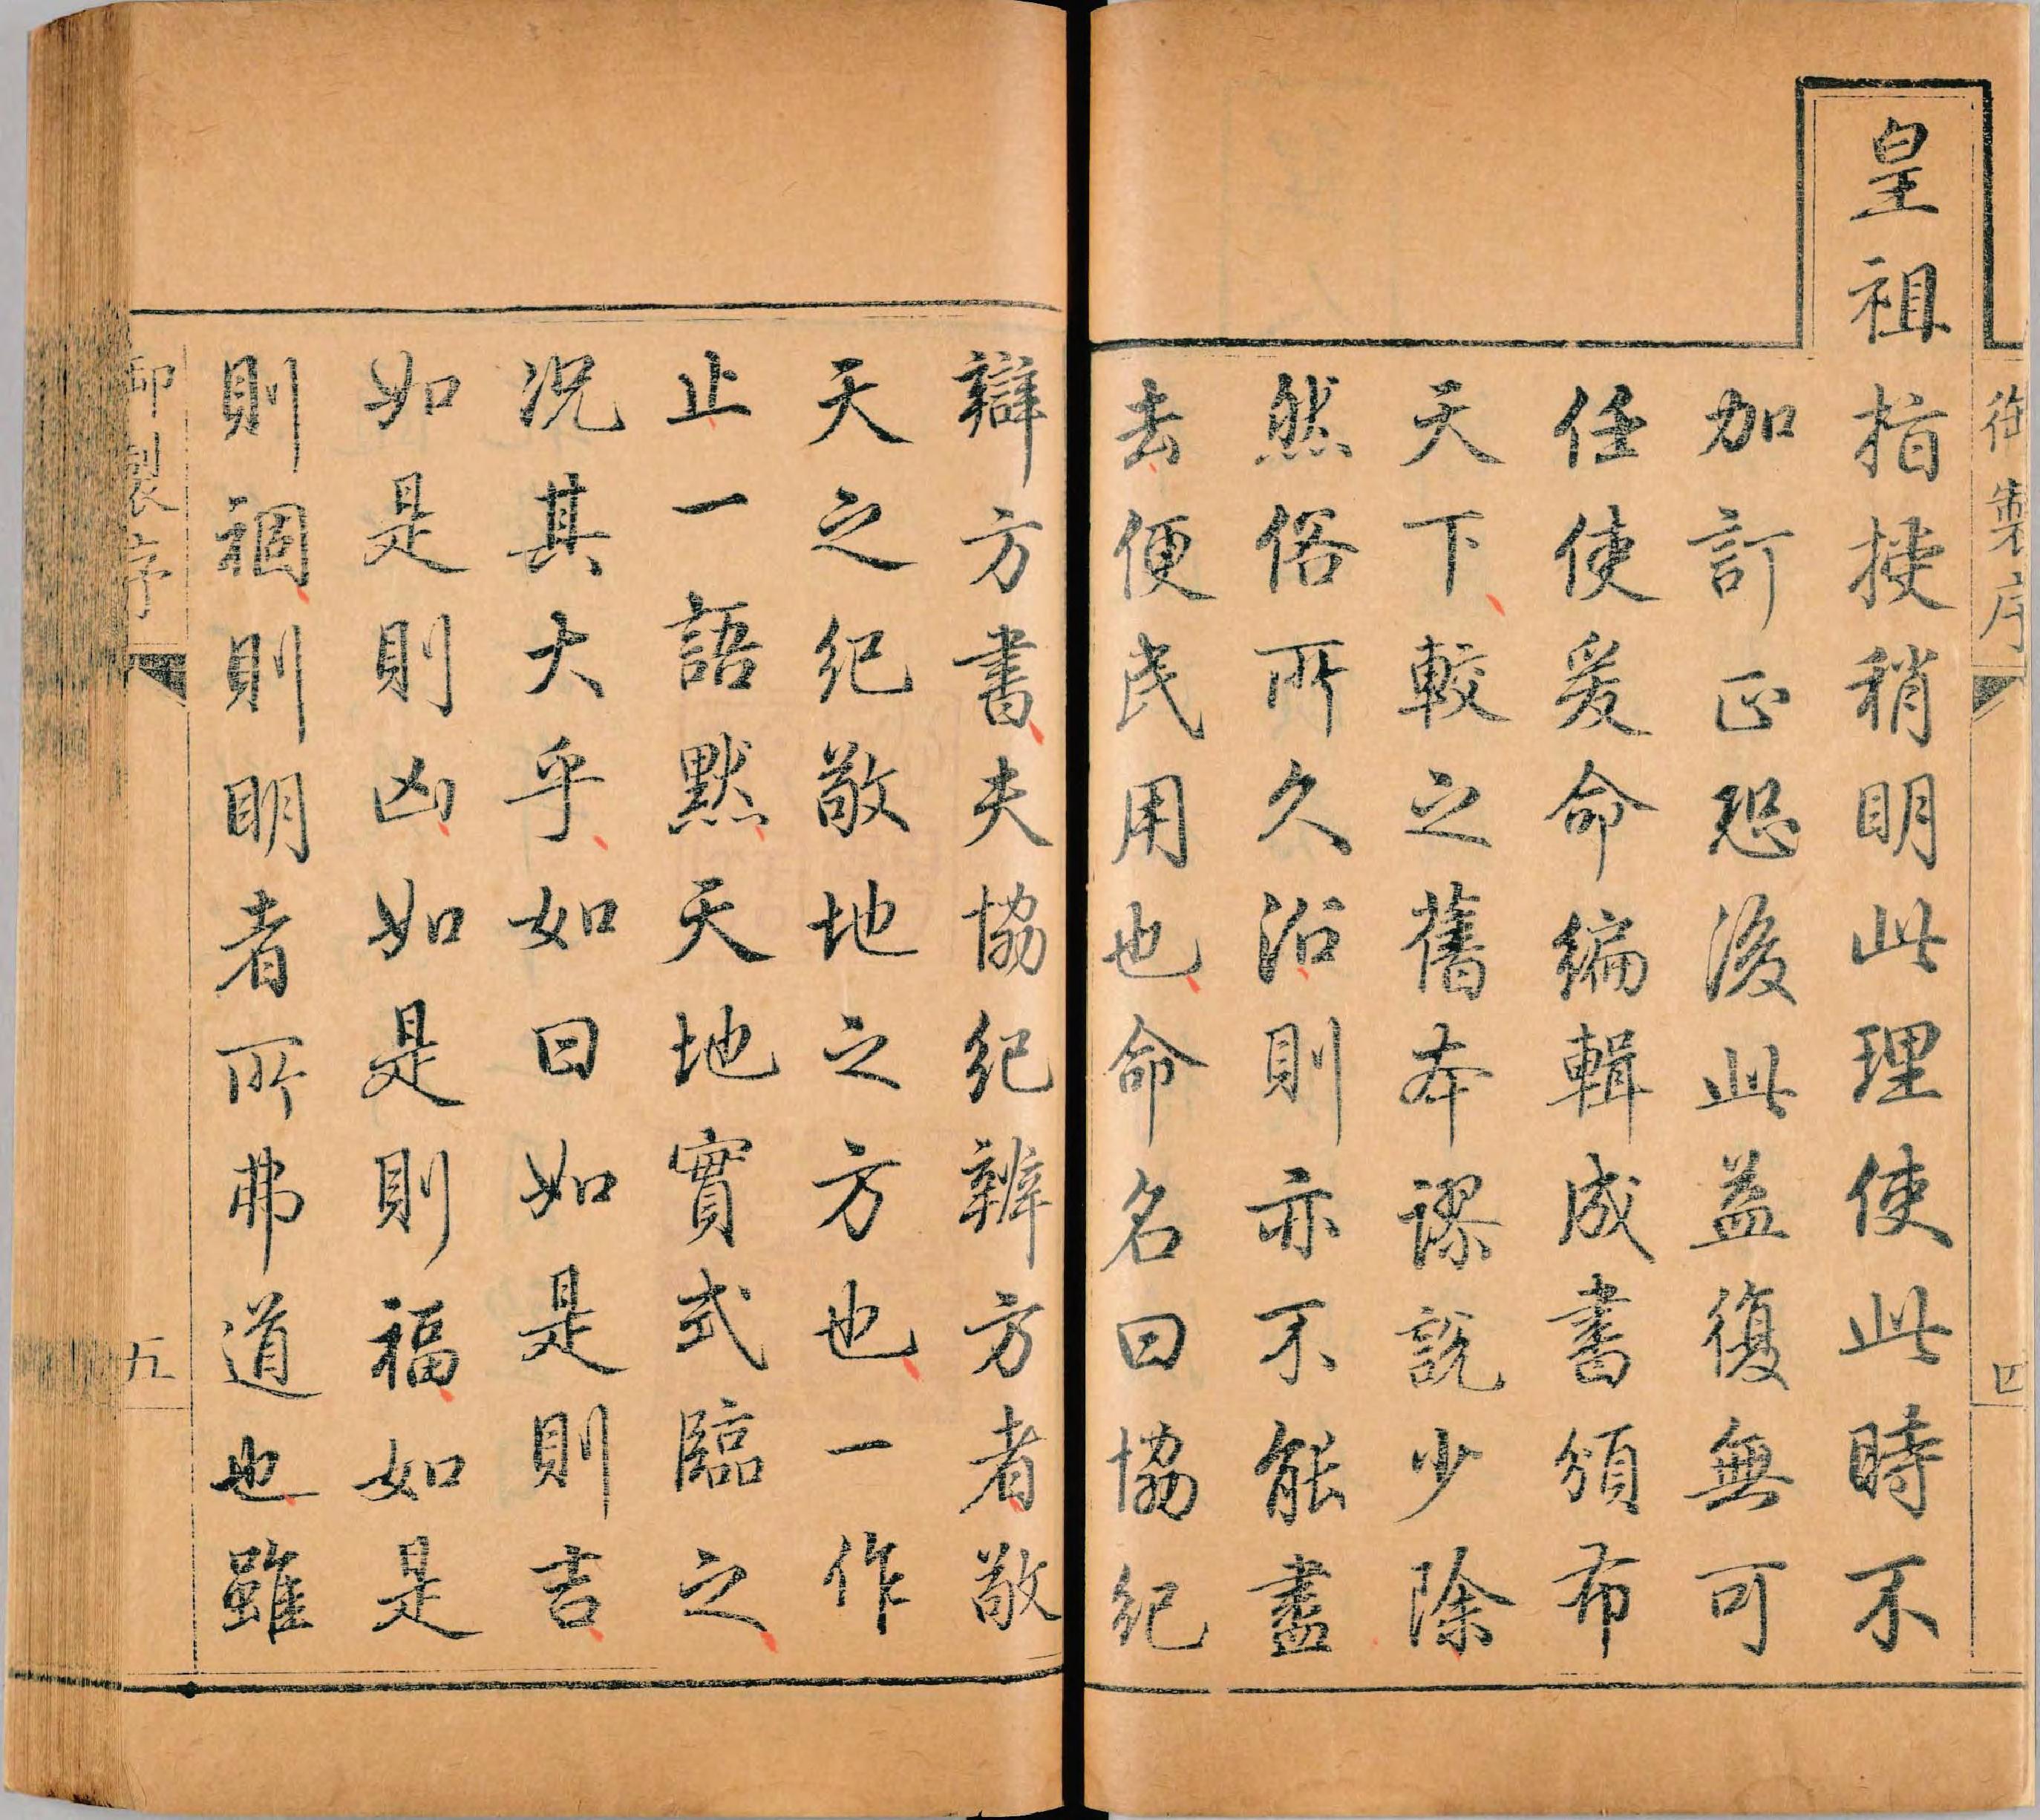 御製序
四
皇祖指授稍明此理使此時不
加訂正恐後此益復無可
任使爰命編輯成書頒布
天下較之舊本謬說少除
然俗所久沿則亦不能盡
去便民用也命名曰協紀
辯方書夫協紀辨方者敬
天之紀敬地之方也一作
止一語默天地實式臨之
況其大乎如曰如是則吉
如是則凶如是則福如是
則禍則則明者所弗道也雖
御製序
五